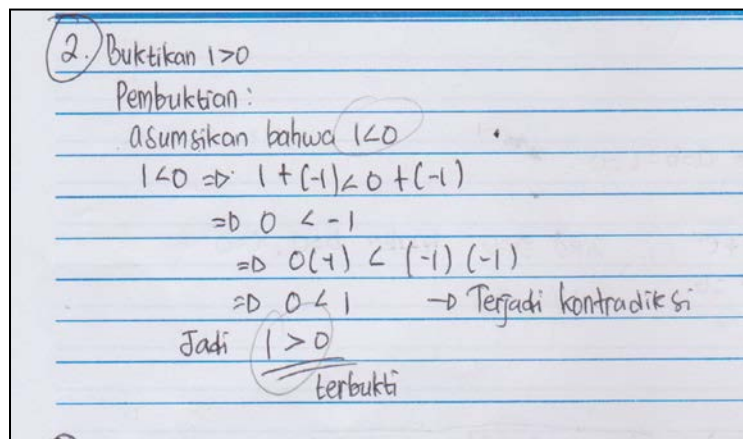 2. Buktikan 1>0
Pembuktian :
asumsikan bahwa 1<0
1<0 ⇒ 1+(-1)<0+(-1)
⇒ 0 < -1
⇒ 0(-1) < (-1)(-1)
⇒ 0<1 → Terjadi kontradiksi
Jadi 1 > 0
terbukti